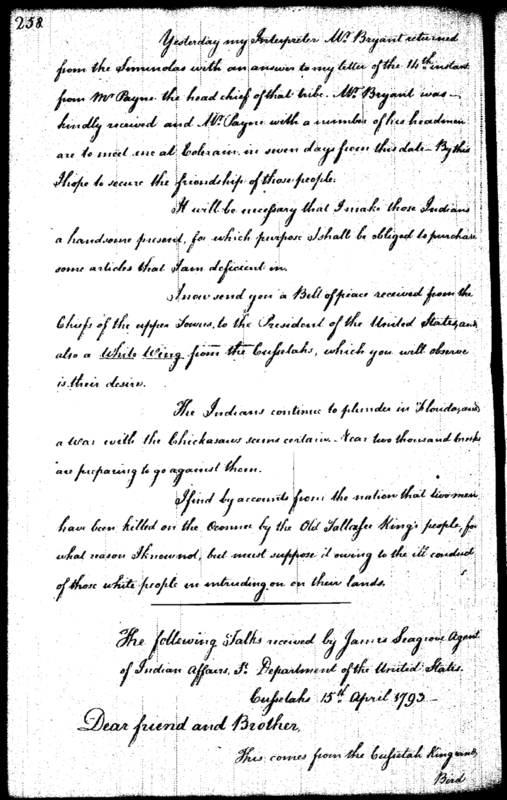 258
Yesterday my Interpreter Mr. Bryant returned
from the Simundas with an answer to my letter of the 14th instant
from Mr Payne the head chief of that tribe. Mr. Bryant was
kindly received and Mr. Payne with a number of his headmen
are to meet me at Colerain in seven days from this date - By this
I hope to secure the friendship of those people.
It will be necessary that I make those Indians
a handsome present, for which purpose I shall be obliged to purchase
some articles that I am deficient in.
I now send you a Belt of peace received from the
Chiefs of the upper Towns, to the President of the United States, and
also a White Wing from the Cussetahs, which you will observe
is their desire.
The Indians continue to plunder in Florida, and
a war with the Chickasaws seems certain. Near two thousand Creeks
are preparing to go against them.
I find by accounts from the nation that two men
have been killed on the Oconnee by the Old Tallasee King's people, for
what reason I know not, but must suppose it owing to the ill conduct
of those white people in intruding on on their lands.
The following Talks received by James Seagrove Agent
of Indian Affairs, S. Department of the United States.
Cussetahs 15th April 1793
Dear friend and Brother,
This comes from the Cussetah King and
Bird